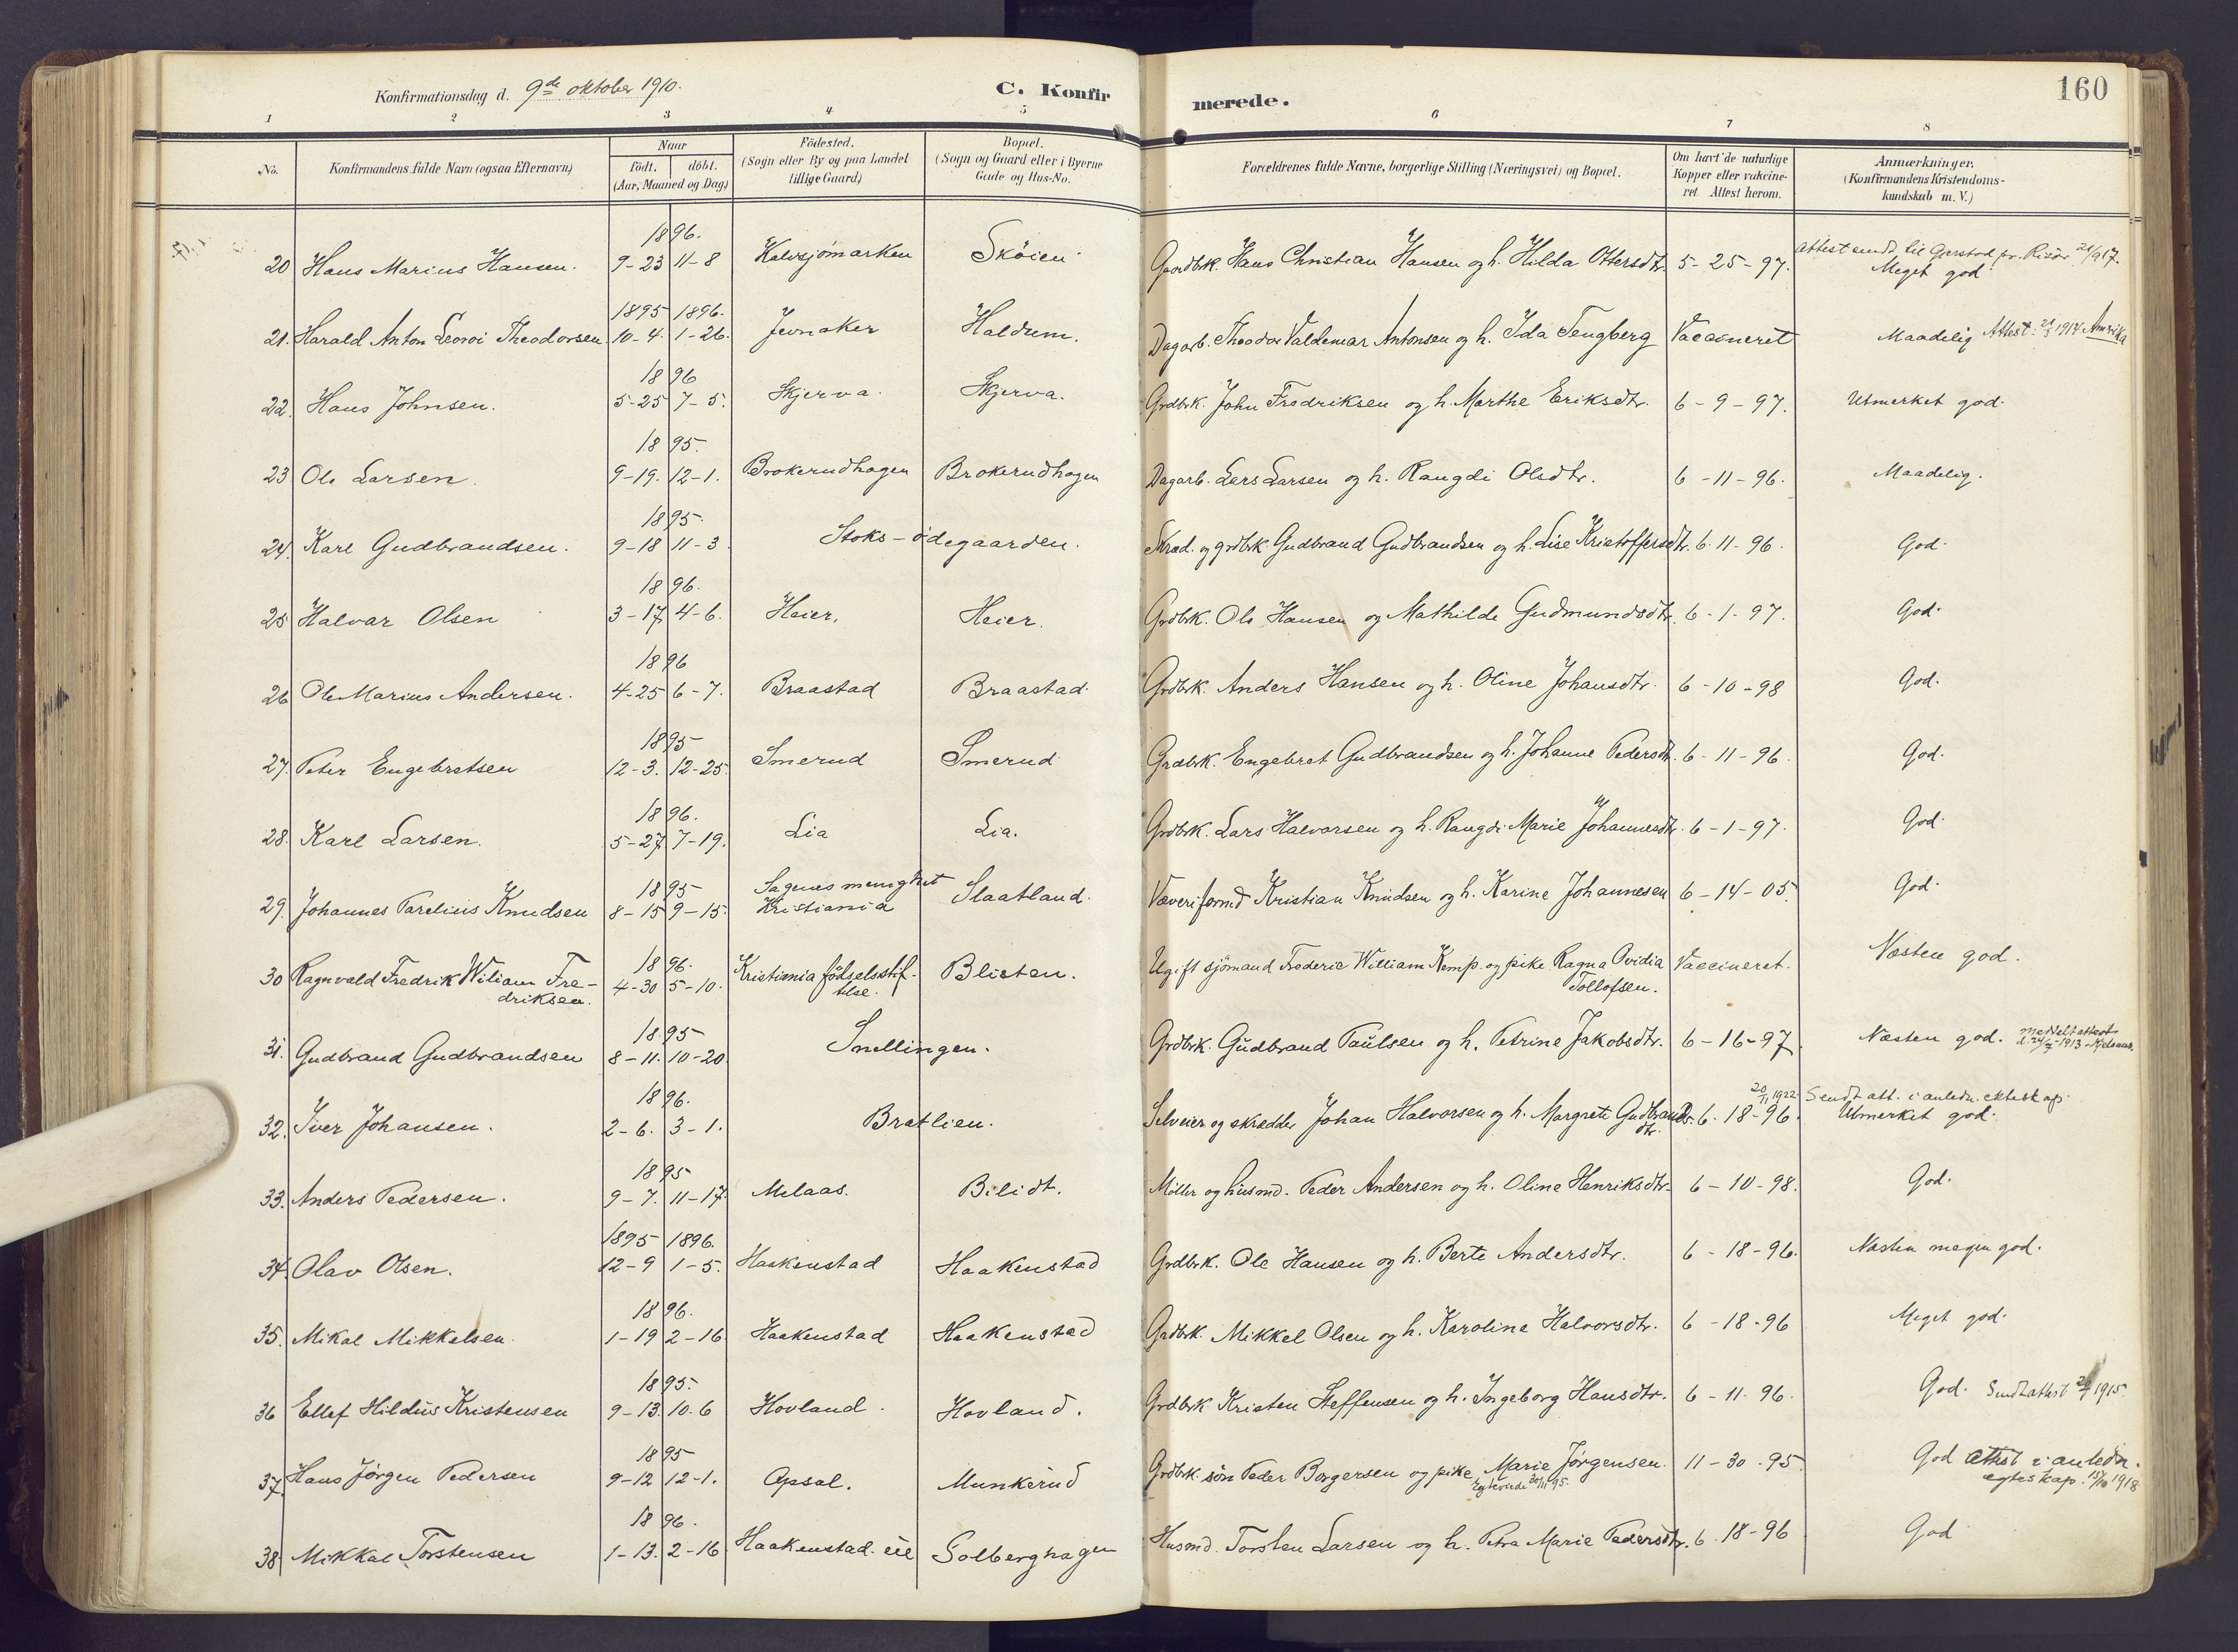 160
Konfirmationsdag d. 9de oktober 1910.
C. Konfirmerede.
1 2 3 4 5 6 7 8
No. | Konfirmandens fulde Navn (ogsaa Efternavn) | Naar födt. döbt. (Aar, Maaned og Dag) | Födested. (Sogn eller By og paa Landet tillige Gaard) | Bopæl. (Sogn og Gaard eller i Byerne Gade og Hus-No. | Forældrenes fulde Navne, borgerlige Stilling (Næringsvei) og Bopæl. | Om havt de naturlige Kopper eller vakcineret Attest herom. | Anmærkninger. (Konfirmandens Kristendomskundskab m. V.)
20 Hans Marius Hansen. 1896. 9-23 11-8 Kalvsjømarken Skøien Gaardbrk. Hans Christian Hansen og h. Hilda Ottersdtr. 5-25-97. Attest sendt til Gjerstad pr. Risør 21/9 17. Meget god
21. Harald Anton Theodorsen 1895 1896. 10-4. 1-26. Jevnaker Haldum. Dagarb. Theodor Valdemar Antonsen og h. Ida Tengberg Vaccineret Maadelig Attest: 1914 Amrika
22. Hans Johnsen. 1896 5-25 7-5. Skjerva. Skjerva. Grdbrk. John Fredriksen og h. Marthe Eriksdtr. 6-9-97. Utmerket god.
23 Ole Larsen. 1895. 9-19. 12-1. Brokerudhagen Brokerudhagen Dagarb. Lars Larsen og h. Rangdi Olsdtr. 6-11-96. Maadelig.
24. Karl Gudbrandsen. 1895. 9-18 11-3 Stoks-ödegaarden. Skræd. og grdbrk. Gudbrand Gudbrandsen og h. Lise Kristoffersdtr. 6-11-96. God.
25 Halvar Olsen 1896. 3-17 4-6. Heier. Heier. Grdbrk. Ole Hansen og Mathilde Gudmundsdtr. 6-1-97. God.
26 Ole Marius Andersen. 1896 4-25 6-7. Braastad Braastad. Grdbrk. Anders Hansen og h. Oline Johansdtr. 6-10-98 God.
27. Peter Engebretsen 1895 12-3. 12-25. Smerud Smerud Grdbrk. Engebret Gudbrandsen og h. Johanne Pedersdtr. 6-11-96. God.
28. Karl Larsen. 1896. 5-27 7-19. Lia Lia. Grdbrk. Lars Halvorsen og h. Rangdi Marie Johannesdtr. 6-1-97. God
29. Johannes Parelius Knudsen 1895 8-15 9-15. Sagenes menighet Kristiania Slaatland. Væveriformd Kristian Knudsen og h. Karine Johannesen 6-14-05. God.
30 Ragnvald Fredrik Wiliam Fredriksen. 1896. 4-30 5-10. Kristiania födselsstiftelse. Blisten. Ugift sjömand Frederic William Kemp. og pike Ragna Ovidia Tollofsen. Vaccineret. Næsten god.
31. Gudbrand Gudbrandsen 1895 8-11. 10-20 Snellingen. Grdbrk. Gudbrand Paulsen og h. Petrine Jakobsdtr. 6-16-97. Næsten god. Meddelt attest 1913
32. Iver Johansen. 1896. 2-6. 3-1. Bratlien. Selveier og skrædder Johan Halvorsen og h. Margrete Gudbrandsdtr. 6-18-96. 20/11 1922 Sendt att. i anledn. ekteskap. Utmerket god.
33. Anders Pedersen. 1895 9-7. 11-17 Melaas. Bilidt. Möller og husmd. Peder Andersen og h. Oline Henriksdtr. 6-10-98. God.
34. Olav Olsen. 1895 1896. 12-9 1-5. Haakenstad Haakenstad Grdbrk. Ole Hansen og h. Berte Andersdtr. 6-18-96. Næsten megen god.
35. Mikal Mikkelsen. 1896. 1-19 2-16 Haakenstad Haakenstad Grdbrk. Mikkel Olsen og h. Karoline Halvorsdtr. 6-18-96 Meget god.
36 Ellef Hildus Kristensen 1895. 9-13. 10-6 Hovland. Hovland. Grdbrk Kristen Steffensen og h. Ingeborg Hansdtr. 6-11-96. God. Sendt attest 1915.
37. Hans Jörgen Pedersen 1895 9-12 12-1. Opsal. Munkerud Grdbrk. sön Peder Borgersen og pike Marie Jörgensen. Egteviede 30/11 95. 11-30-95. God Attest i anledn. egteskap. 15/10 1918
38 Mikkal Torstensen 1896. 1-13. 2-16 Haakenstad-eie Solberghagen Husmd. Torsten Larsen og h. Petra Marie Pedersdtr. 6-18-96 God